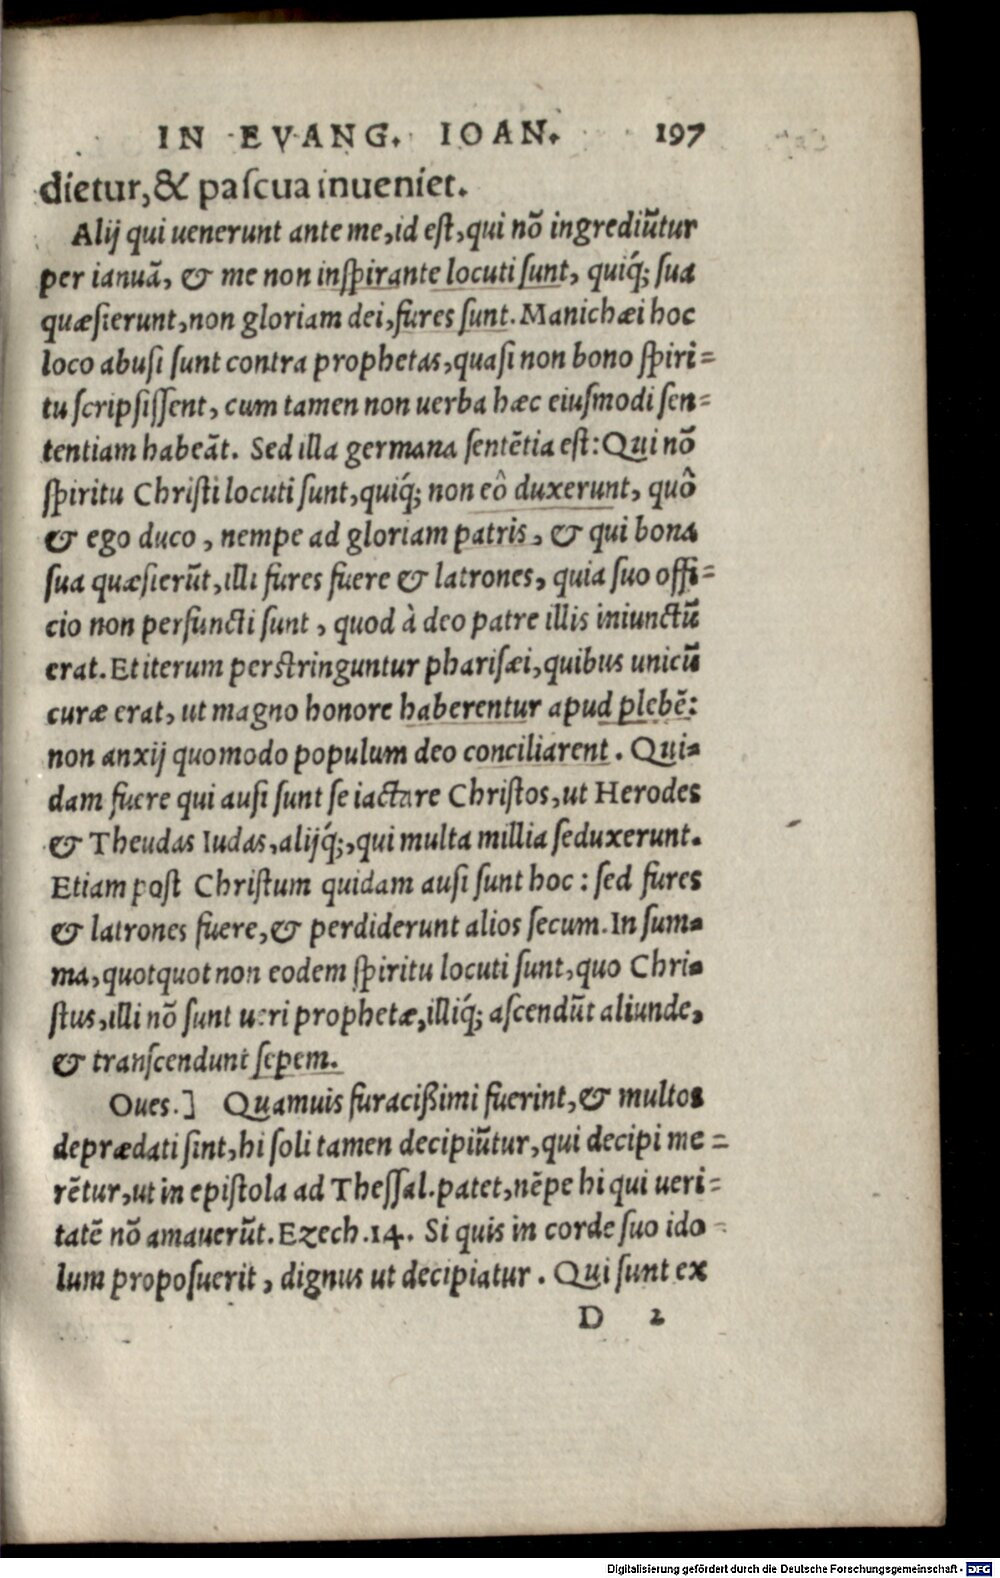 IN EVANG. IOAN. 197
dietur,& pascua inueniet.
Alij qui uenerunt ante me,id est,qui nõ ingrediũtur
per ianuã, & me non inspirante locuti sunt, quiq́; sua
quæsierunt,non gloriam dei,fures sunt. Manichæi hoc
loco abusi sunt contra prophetas,quasi non bono spiri=
tu scripsissent, cum tamen non uerba hæc eiusmodi sen=
tentiam habeãt. Sed illa germana sentẽtia est: Qui nõ
spiritu Christi locuti sunt,quiq́; non eô duxerunt, quô
& ego duco, nempe ad gloriam patris, & qui bona
sua quæsierũt,illi fures fuere & latrones, quia suo offi=
cio non perfuncti sunt, quod à deo patre illis iniunctũ
erat. Et iterum perstringuntur pharisæi,quibus unicũ
curæ erat, ut magno honore haberentur apud plebẽ:
non anxij quomodo populum deo conciliarent. Qui=
dam fuere qui ausi sunt se iactare Christos,ut Herodes
& Theudas Iudas,alijq́;,qui multa millia seduxerunt.
Etiam post Christum quidam ausi sunt hoc: sed fures
& latrones fuere,& perdiderunt alios secum. In sum=
ma,quotquot non eodem spiritu locuti sunt,quo Chri=
stus,illi nõ sunt ueri prophetæ,illiq́; ascendũt aliunde,
& transcendunt sepem.
Oues.] Quamuis furacißimi fuerint,& multos
deprædati sint,hi soli tamen decipiũtur,qui decipi me=
rẽtur,ut in epistola ad Thessal.patet,nẽpe hi qui ueri=
tatẽ nõ amauerũt. Ezech.14. Si quis in corde suo ido=
lum proposuerit, dignus ut decipiatur. Qui sunt ex
D 2
Digitalisierung gefördert durch die Deutsche Forschungsgemeinschaft - DFG